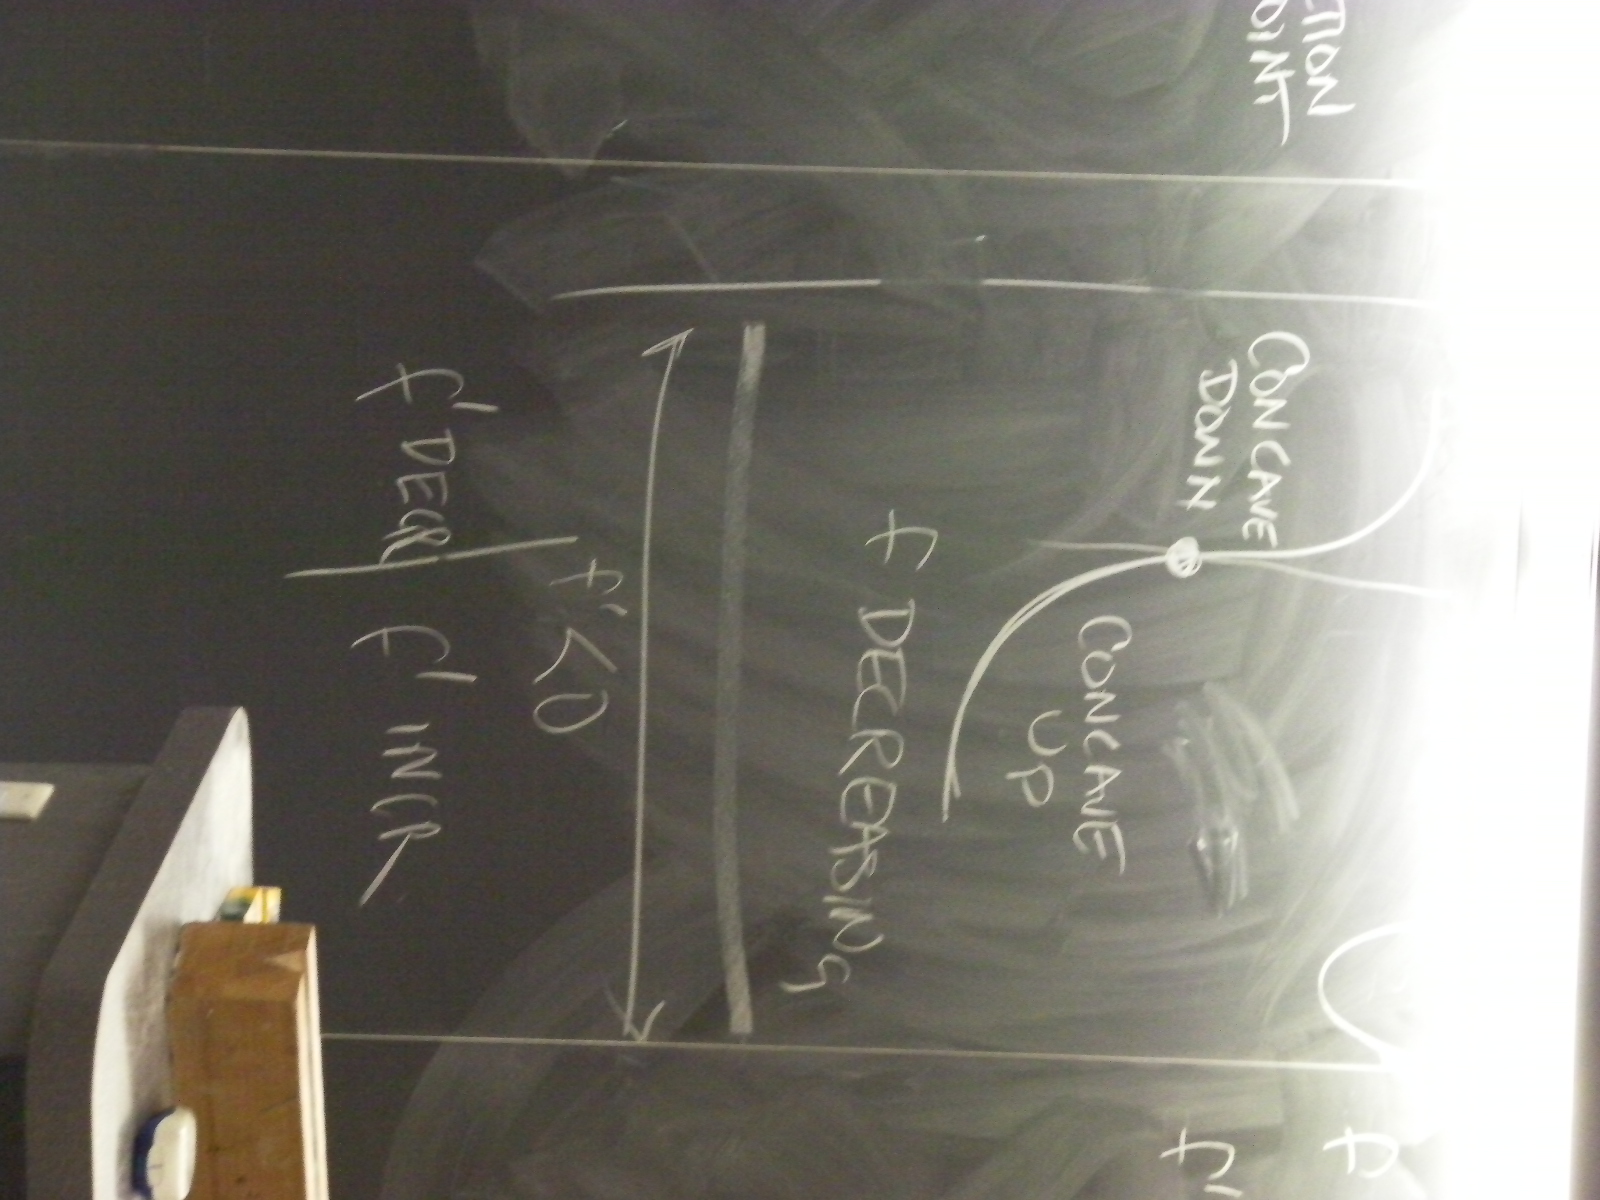 CTION
OINT
CONCAVE
DOWN
CONCAVE
UP
f DECREASING
f' < 0
f' DECR | f' INCR
f
f'